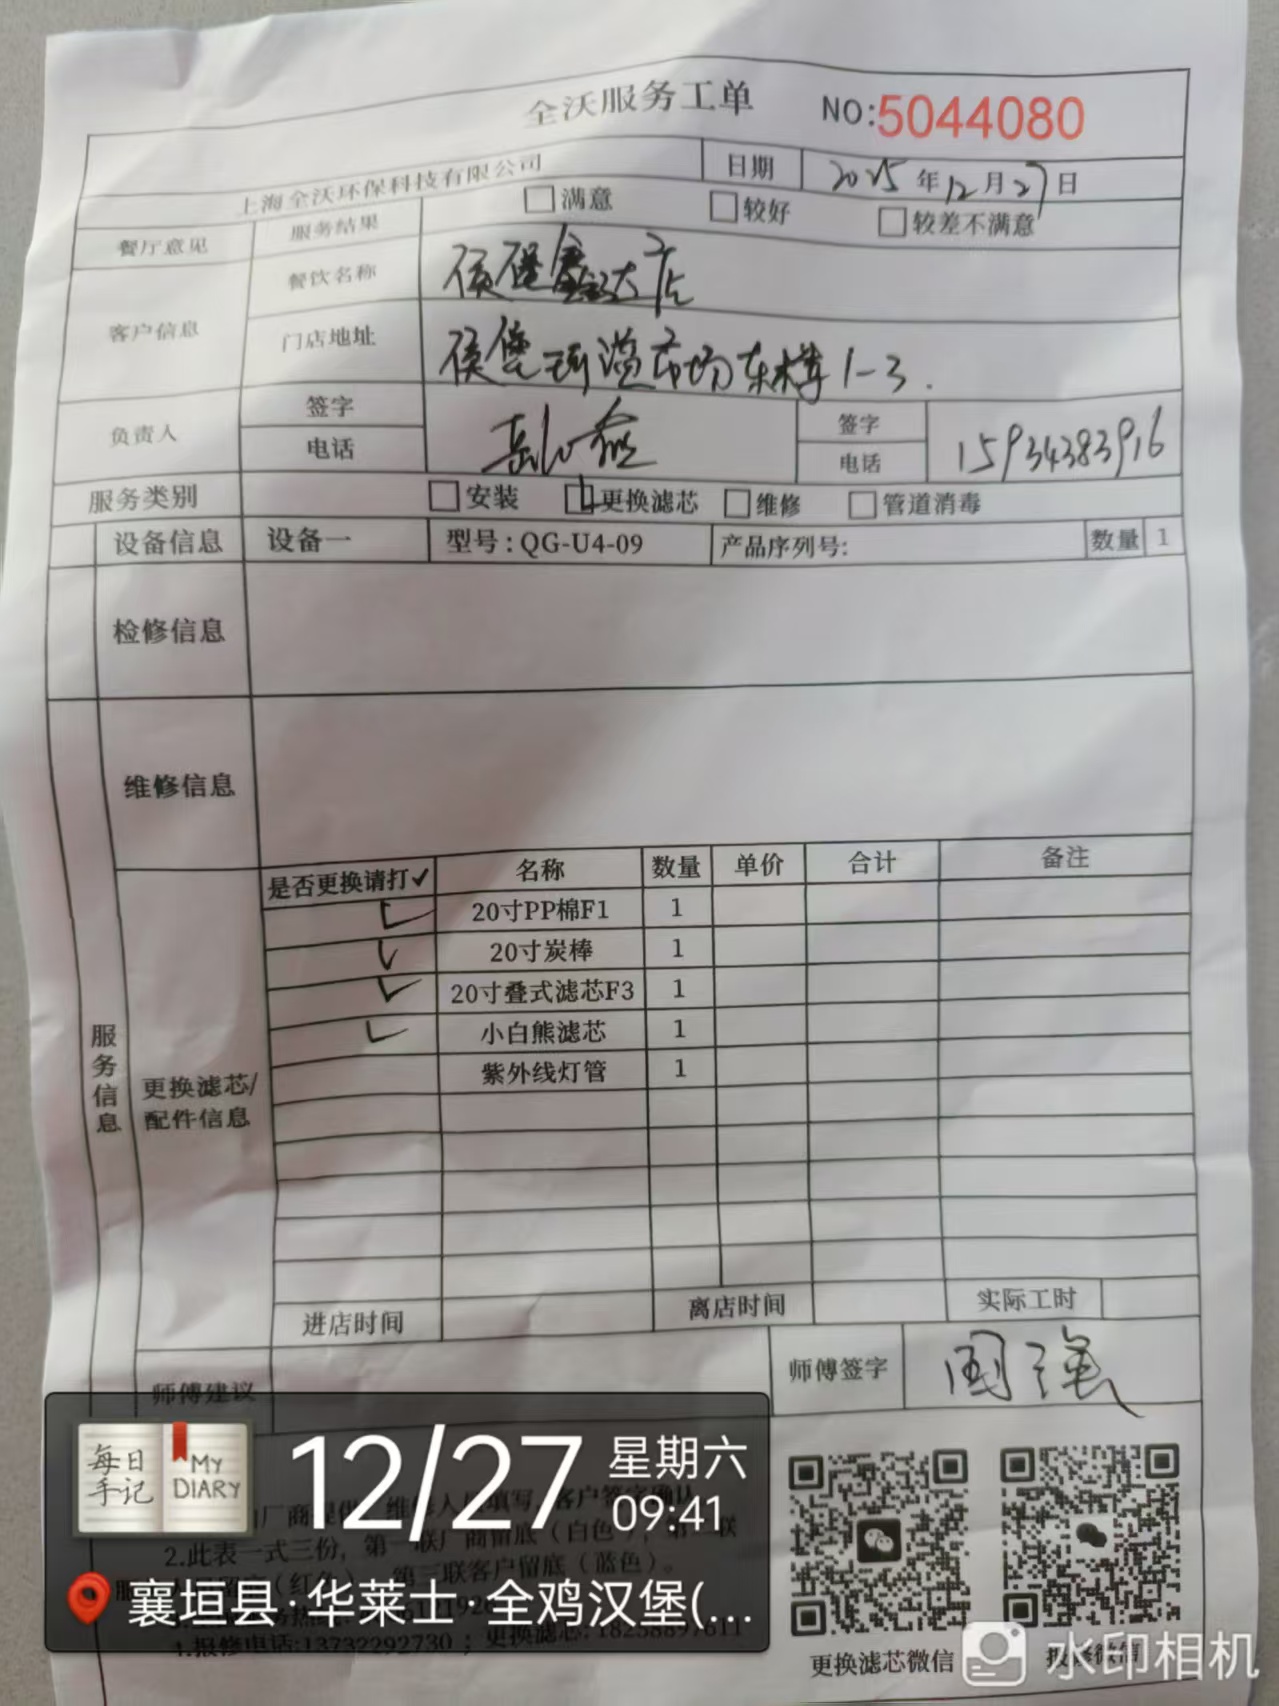 全沃服务工单 NO:5044080
上海全沃环保科技有限公司 日期 2025年12月27日
餐厅意见 服务结果 满意 较好 较差不满意
客户信息 餐饮名称 侯堡鑫达店
门店地址 侯堡 市场东楼1-3.
负责人 签字 签字
电话 电话 15934383916
服务类别 安装 更换滤芯 维修 管道消毒
设备信息 设备一 型号:QG-U4-09 产品序列号: 数量 1
检修信息
维修信息
服务信息
更换滤芯/
配件信息
是否更换请打✓ 名称 数量 单价 合计 备注
✓ 20寸PP棉F1 1
✓ 20寸炭棒 1
✓ 20寸叠式滤芯F3 1
✓ 小白熊滤芯 1
紫外线灯管 1
进店时间 离店时间 实际工时
师傅建议 师傅签字 国强
每日手记 MY DIARY
12/27 星期六 09:41
2.此表一式三份,第一联厂商留底(白色),第二联
(红色),第三联客户留底(蓝色)。
襄垣县·华莱士·全鸡汉堡(...
4.报修电话:13732292730;更换滤芯:18258897611
更换滤芯微信 报修微信
水印相机